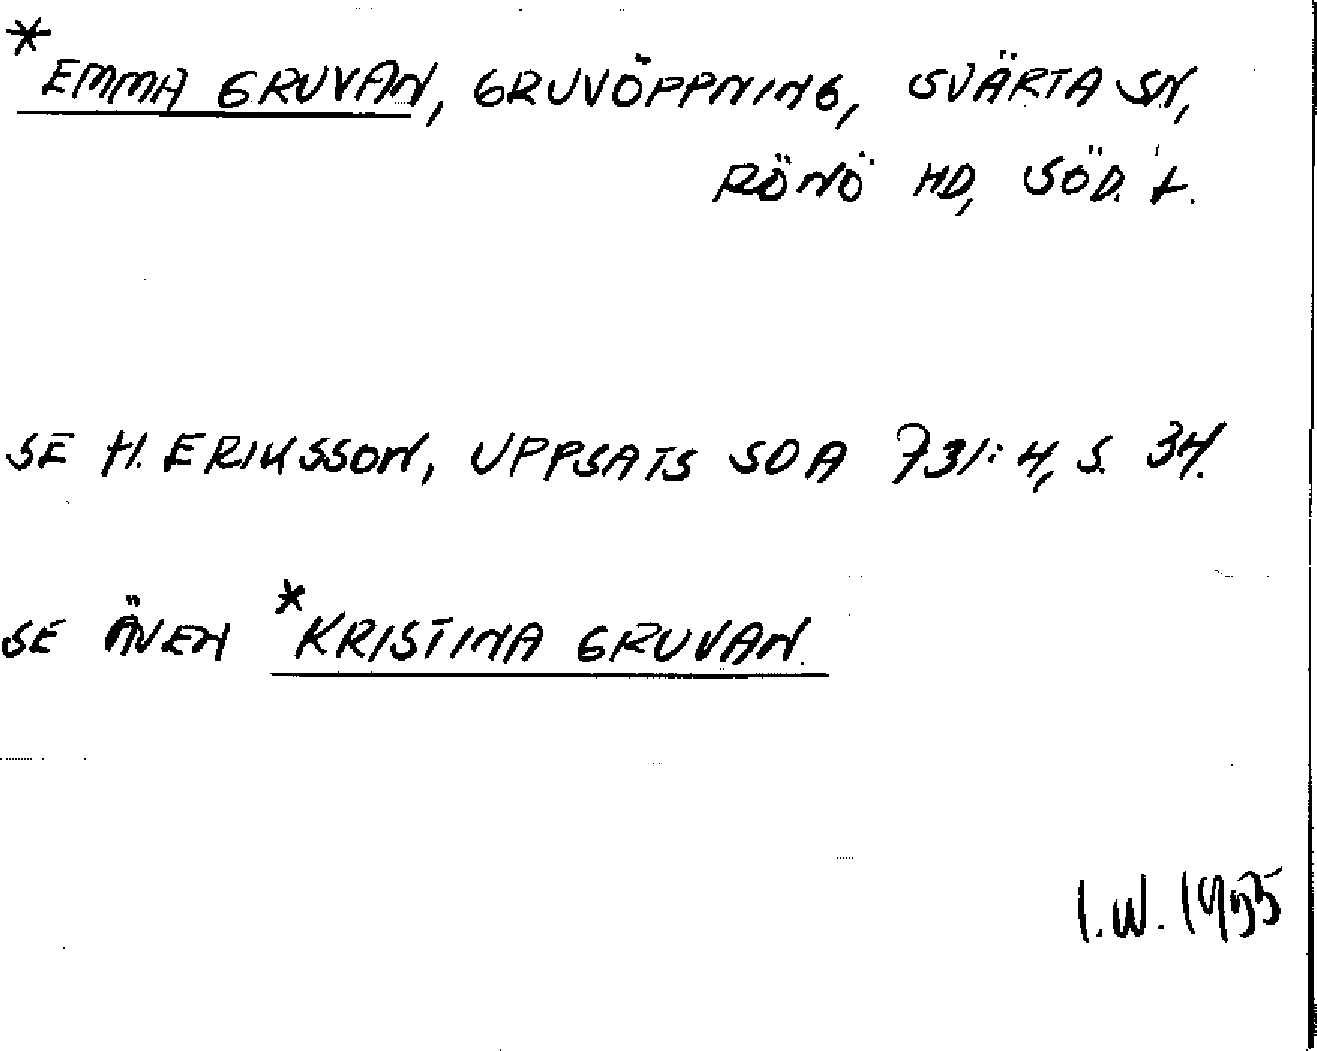 *EMMA GRUVAN, GRUVÖPPNING, SVÄRTA SN,
RÖNÖ HD, SÖD. L.
SE H. ERIKSSON, UPPSATS SOA 731:4, S. 34.
SE ÄVEN *KRISTINA GRUVAN.
I.W. 1955